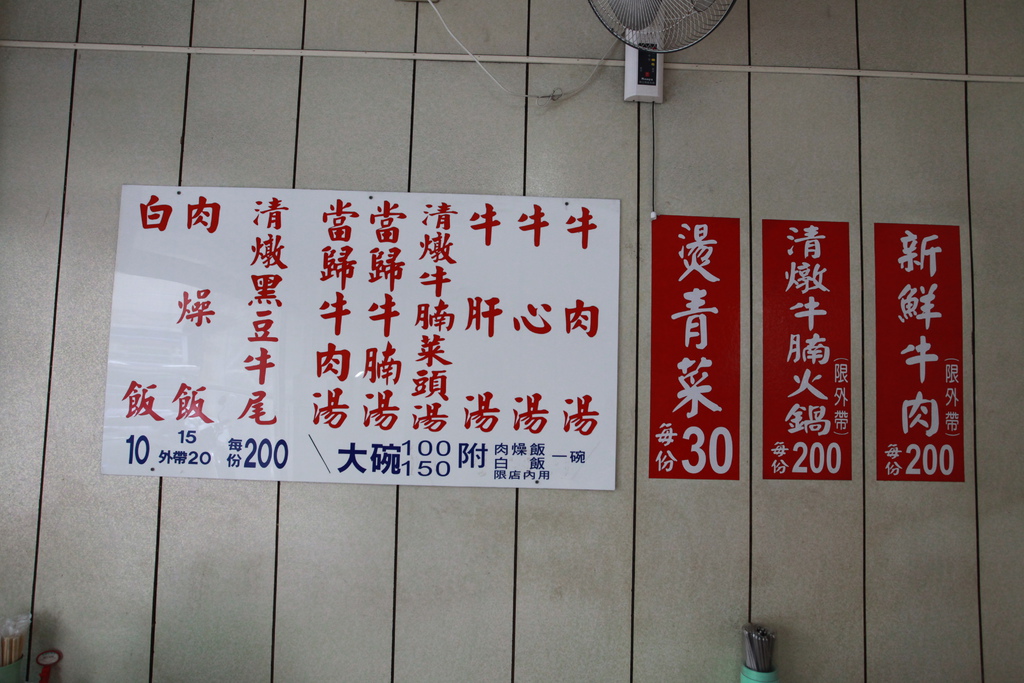 牛肉湯
牛心湯
牛肝湯
清燉牛腩菜頭湯
當歸牛腩湯
當歸牛肉湯
清燉黑豆牛尾
每份200
肉燥飯
15
外帶20
白飯
10
大碗100
150
附
肉燥飯
白飯
一碗
限店內用
新鮮牛肉
(限外帶)
每份200
清燉牛腩火鍋
(限外帶)
每份200
燙青菜
每份30